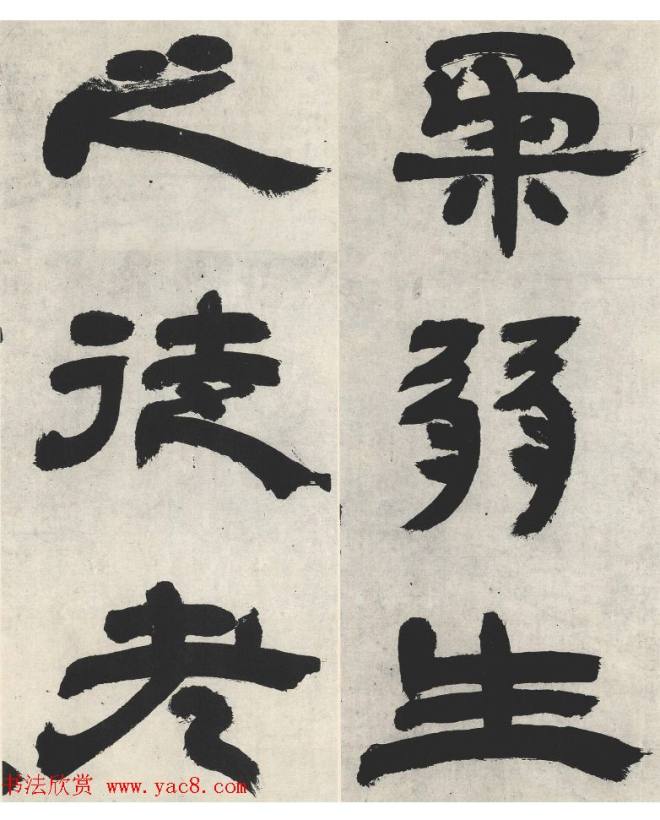 柔弱生
之徒老
书法欣赏 www.yac8.com